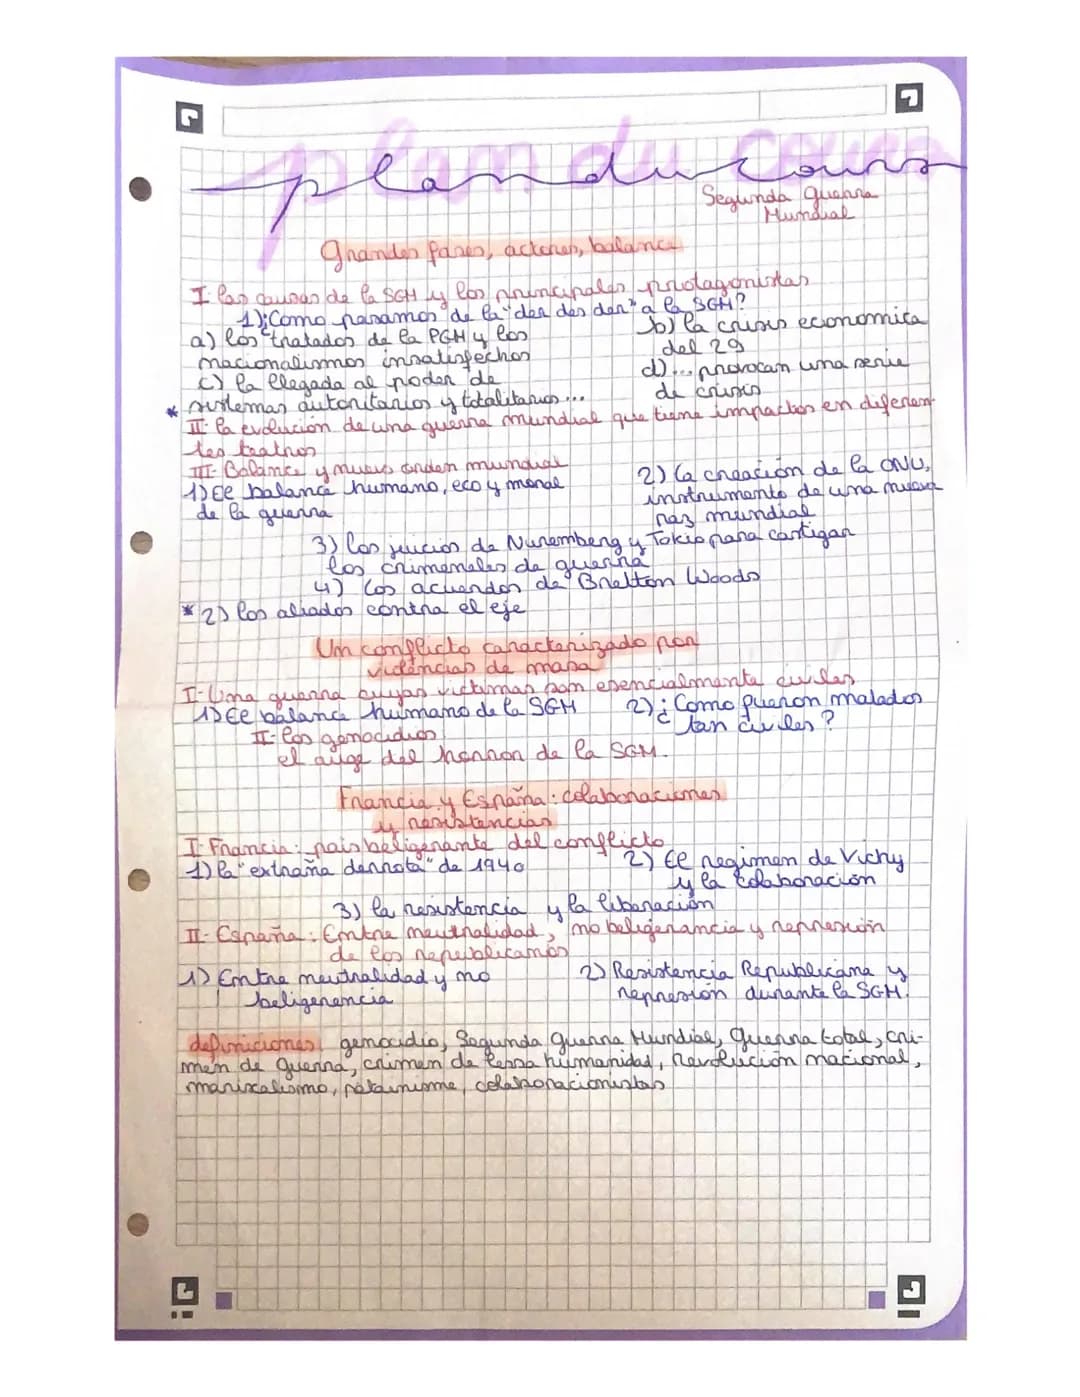 plan du cours
Segunda guerra
Mundial
Grandes fases, actores, balance
I- las causas de la SGM y los principales protagonistas
1)¿Como pasamos de la "der des der" a la SGM?
a) los tratados de la PGM y los
nacionalismos insatisfechos
b) la crisis economica
del 29
c) la llegada al poder de
* sistemas autoritarios y totalitarios...
d)... provocan una serie
de crisis
II- la evolución de una guerra mundial que tiene impactos en diferen-
tes teatros
III- Balance y nuevo orden mundial
1) El balance humano, eco y moral
de la guerra
2) la creación de la ONU,
instrumento de una nueva
paz mundial
3) los juicios de Nuremberg y Tokio para castigar
los criminales de guerra
4) los acuerdos de Bretton Woods
* 2) los aliados contra el eje
Un conflicto caracterizado por
violencias de masa
I- Una guerra cuyas victimas son esencialmente civiles
1) El balance humano de la SGM
2) ¿Como fueron matados
tan civiles?
II- los genocidios
el auge del horror de la SGM.
Francia y España: colaboraciones
y resistencias
I- Francia: pais beligerante del conflicto
1) la "extraña derrota" de 1940
2) El regimen de Vichy
y la colaboración
3) la resistencia y la liberación
II- España: Entre neutralidad, no beligerancia y represión
de los republicanos
1) Entre neutralidad y no
beligerencia
2) Resistencia Republicana y
represión durante la SGM.
definiciones genocidio, Segunda Guerra Mundial, Guerra total, cri-
men de guerra, crimen de lessa humanidad, Revolución nacional,
mariscalismo, petainisme, colaboracionistas